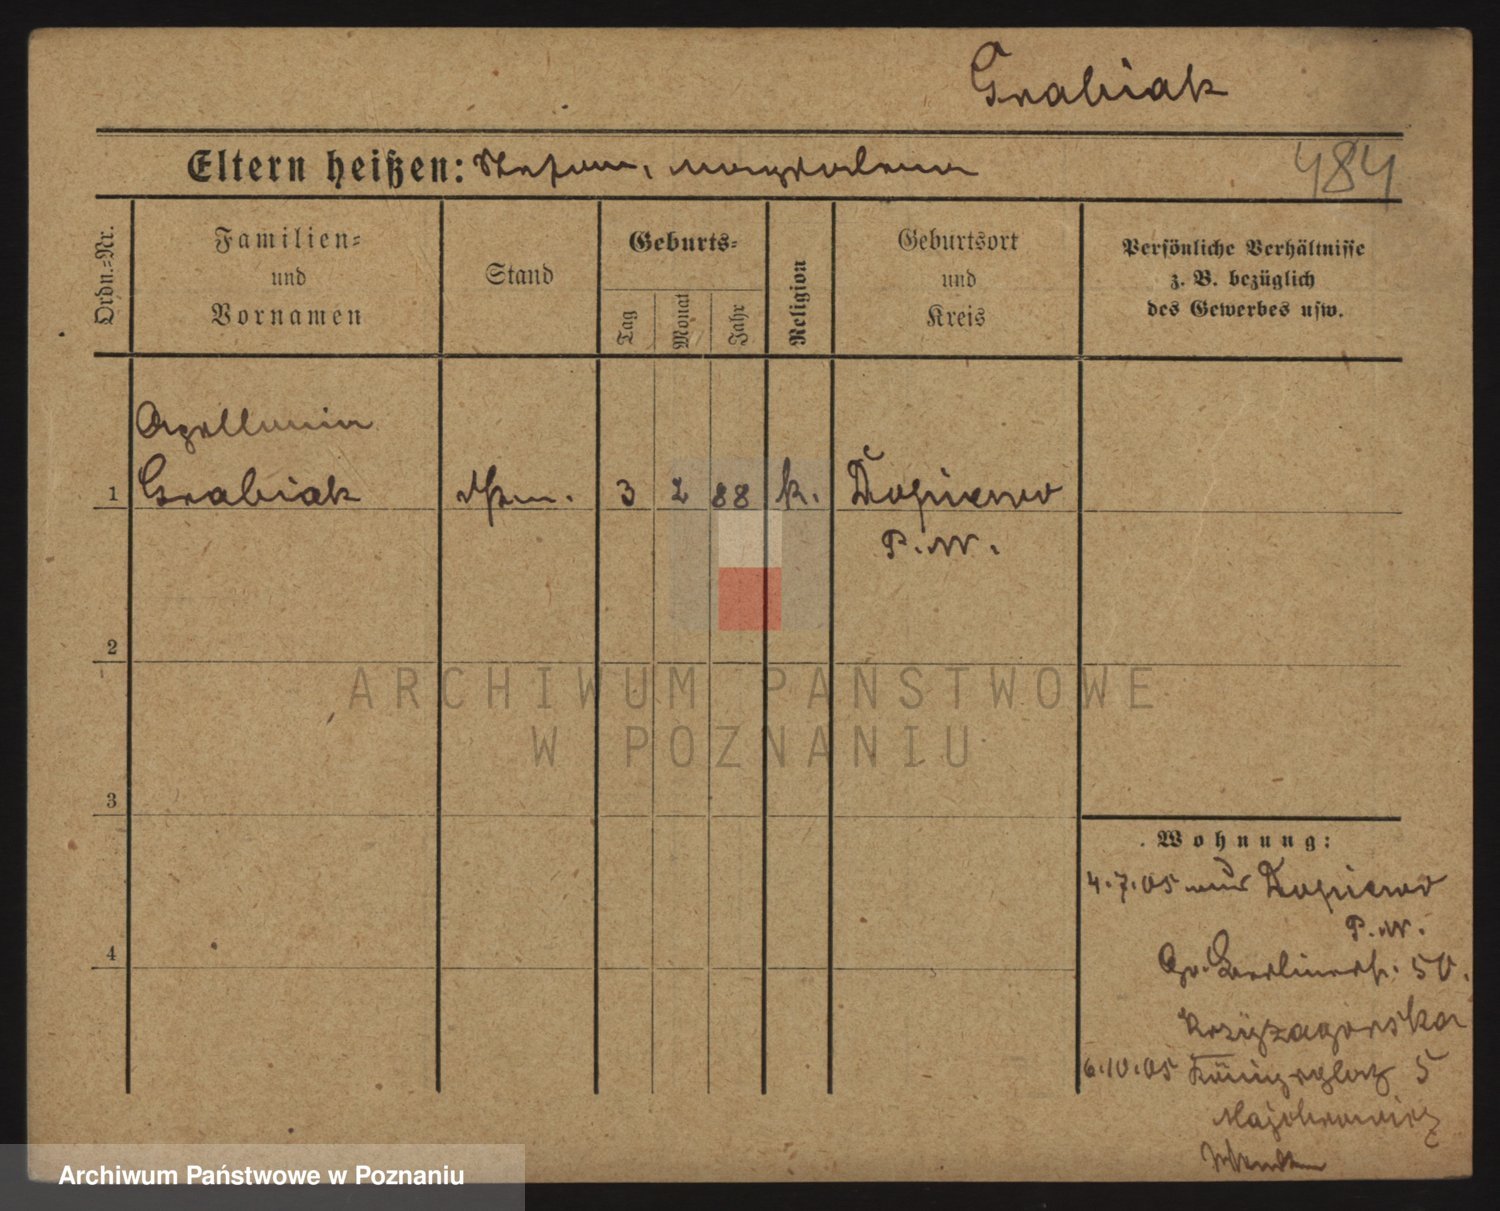 Grabiak
Eltern heißen: Stefan, Magdalena
484
Ordn.=Nr.
Familien=
und
Vornamen
Stand
Geburts=
Tag
Monat
Jahr
Religion
Geburtsort
und
Kreis
Persönliche Verhältnisse
z. B. bezüglich
des Gewerbes usw.
Apollonia
1 Grabiak 3 2 88 k. Dopiewo
P. W.
2
ARCHIWUM PAŃSTWOWE
W POZNANIU
3
Wohnung:
4.7.05 aus Dopiewo
P. W.
4
Gr. Berlinerstr. 50.
Krzyzagorska
6.10.05 Königsplatz 5
Majchrowicz
Archiwum Państwowe w Poznaniu